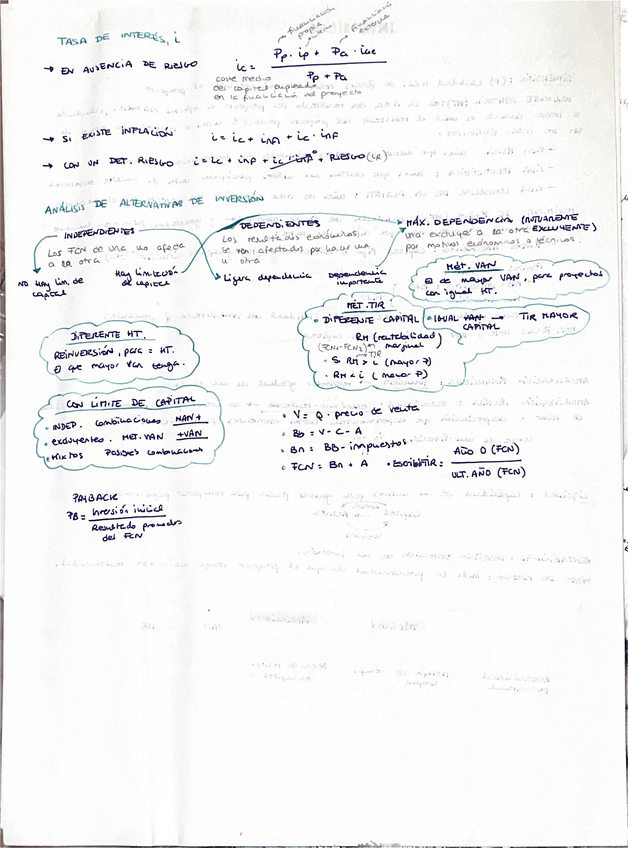 TASA DE INTERÉS, i
financiación propia
financiación externa
→ EN AUSENCIA DE RIESGO
ic = Pp · ip + Pa · iae
Pp + Pa
coste medio
del capital empleado
en la financiación del proyecto
→ SI EXISTE INFLACIÓN i = ic + inf + ic · inf
→ CON UN DET. RIESGO i = ic + inf + ic · inf + RIESGO (LR)
ANÁLISIS DE ALTERNATIVAS DE INVERSIÓN
INDEPENDIENTES
Los FCN de una, no afecta
a la otra
NO Hay lim. de
capital
Hay limitación
de capital
DEPENDIENTES
Los resultados económicos
se ven afectados por hacer una
u otra
Ligera dependencia
Dependencia
importante
MÁX. DEPENDENCIA (MUTUAMENTE
una excluye a la otra EXCLUYENTE)
por motivos económicos o técnicos
MÉT. VAN
El de mayor VAN, para proyectos
con igual HT.
MÉT. TIR
• DIFERENTE CAPITAL
RM (rentabilidad)
(FCN1-FCN2) marginal
TIR
• Si RM > i (mayor P)
• RM < i (menor P)
• IGUAL VAN → TIR MAYOR
CAPITAL
DIFERENTE HT.
REINVERSIÓN, para = HT.
El que mayor VAN tenga.
CON LÍMITE DE CAPITAL
• INDEP. combinaciones VAN+
• excluyentes. MET. VAN +VAN
• Mixtos Posibles combinaciones
• V = Q · precio de venta
• Bb = V - C - A
• Bn = BB - impuestos
• FCN = Bn + A
AÑO 0 (FCN)
ULT. AÑO (FCN)
PAYBACK
PB = Inversión inicial
Resultado promedio
del FCN